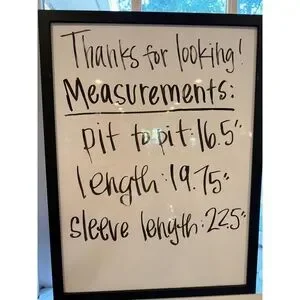 Thanks for looking!
Measurements:
pit to pit: 16.5"
length: 19.75"
sleeve length: 22.5"